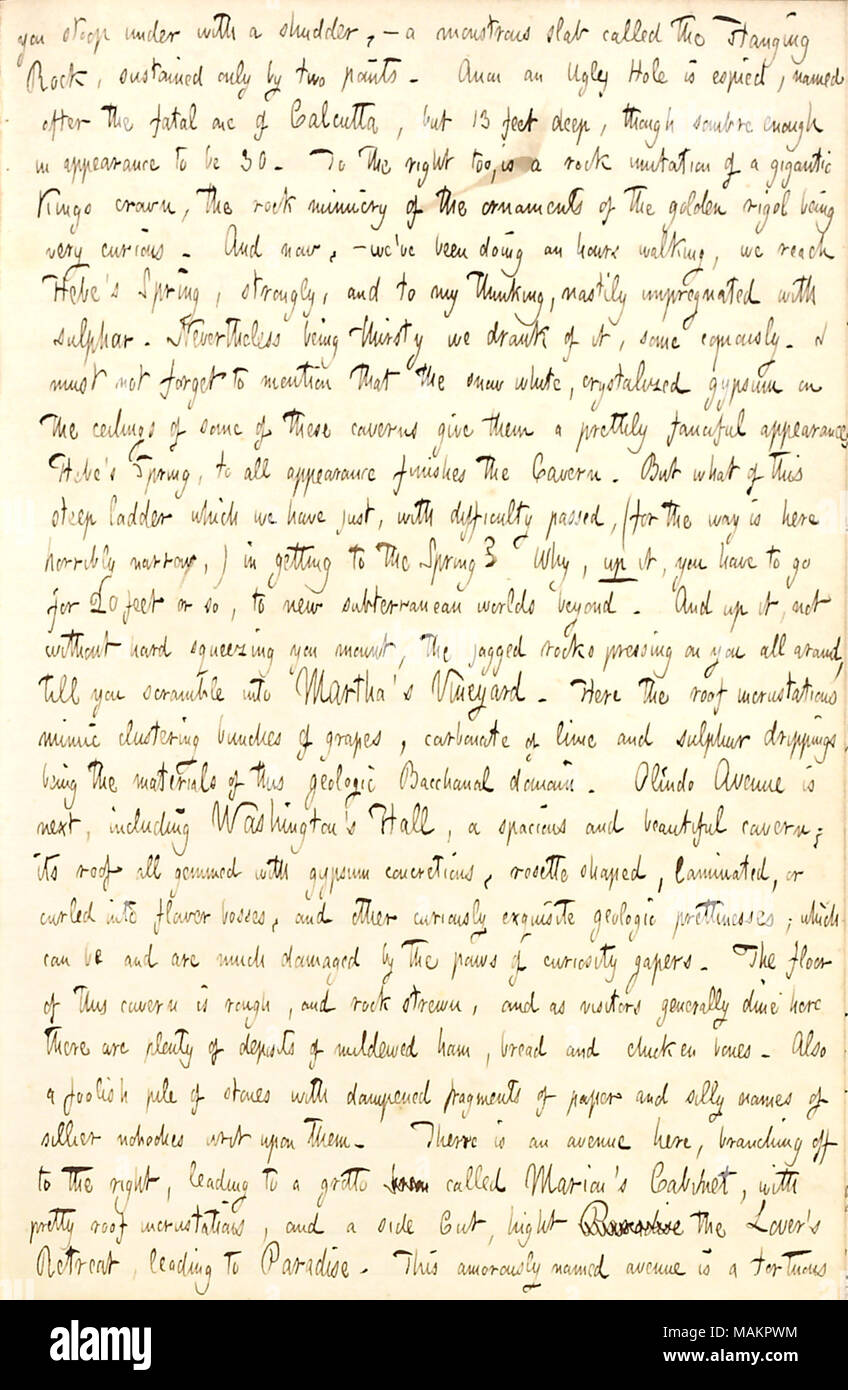 you stoop under with a shudder, - a monstrous slab called the Hanging
Rock, sustained only by two points. Anon an Ugly Hole is espied, named
after the fatal one of Calcutta, but 13 feet deep, though sombre enough
in appearance to be 30. To the right too, is a rock imitation of a gigantic
Kings crown, the rock mimicry of the ornaments of the golden rigol being
very curious. And now, - we've been doing an hours walking, we reach
Hebe's Spring, strongly, and to my thinking, nastily impregnated with
sulphar. Nevertheless being thirsty we drank of it, some copiously. I
must not forget to mention that the snow white, crystalized gypsum on
the ceilings of some of these caverns give them a prettily fanciful appearance.
Hebe's Spring, to all appearance finishes the Cavern. But what of this
steep ladder which we have just, with difficulty passed, (for the way is here
horribly narrow,) in getting to the Spring? Why, up it, you have to go
for 20 feet or so, to new subterranean worlds beyond. And up it, not
without hard squeezing you mount, the jagged rocks pressing on you all around,
till you scramble into Martha's Vineyard. Here the roof incrustations
mimic clustering bunches of grapes, carbonate of lime and sulphur drippings
being the materials of this geologic Bacchanal domain. Olindo Avenue is
next, including Washington's Hall, a spacious and beautiful cavern;
its roof all gemmed with gypsum concretions, rosette shaped, laminated, or
curled into flower bosses, and other curiously exquisite geologic prettinesses; which
can be and are much damaged by the paws of curiosity gapers. The floor
of this cavern is rough, and rock strewn, and as visitors generally dine here
there are plenty of deposits of mildewed ham, bread and chicken bones. Also
a foolish pile of stones with dampened fragments of paper and silly names of
sillier nobodies writ upon them. There is an avenue here, branching off
to the right, leading to a grotto called Marion's Cabinet, with
pretty roof incrustations, and a side cut, hight Paradise the Lover's
Retreat, leading to Paradise. This amorously named avenue is a tortuous
alamy
Image ID: MAKPWM
www.alamy.com